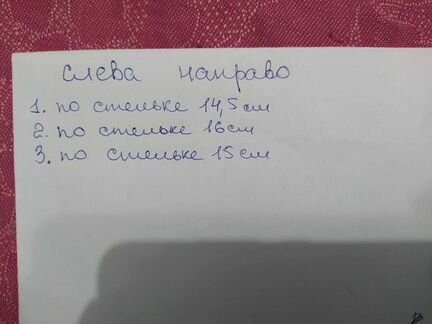 слева направо
1. по стельке 14,5 см
2. по стельке 16 см
3. по стельке 15 см